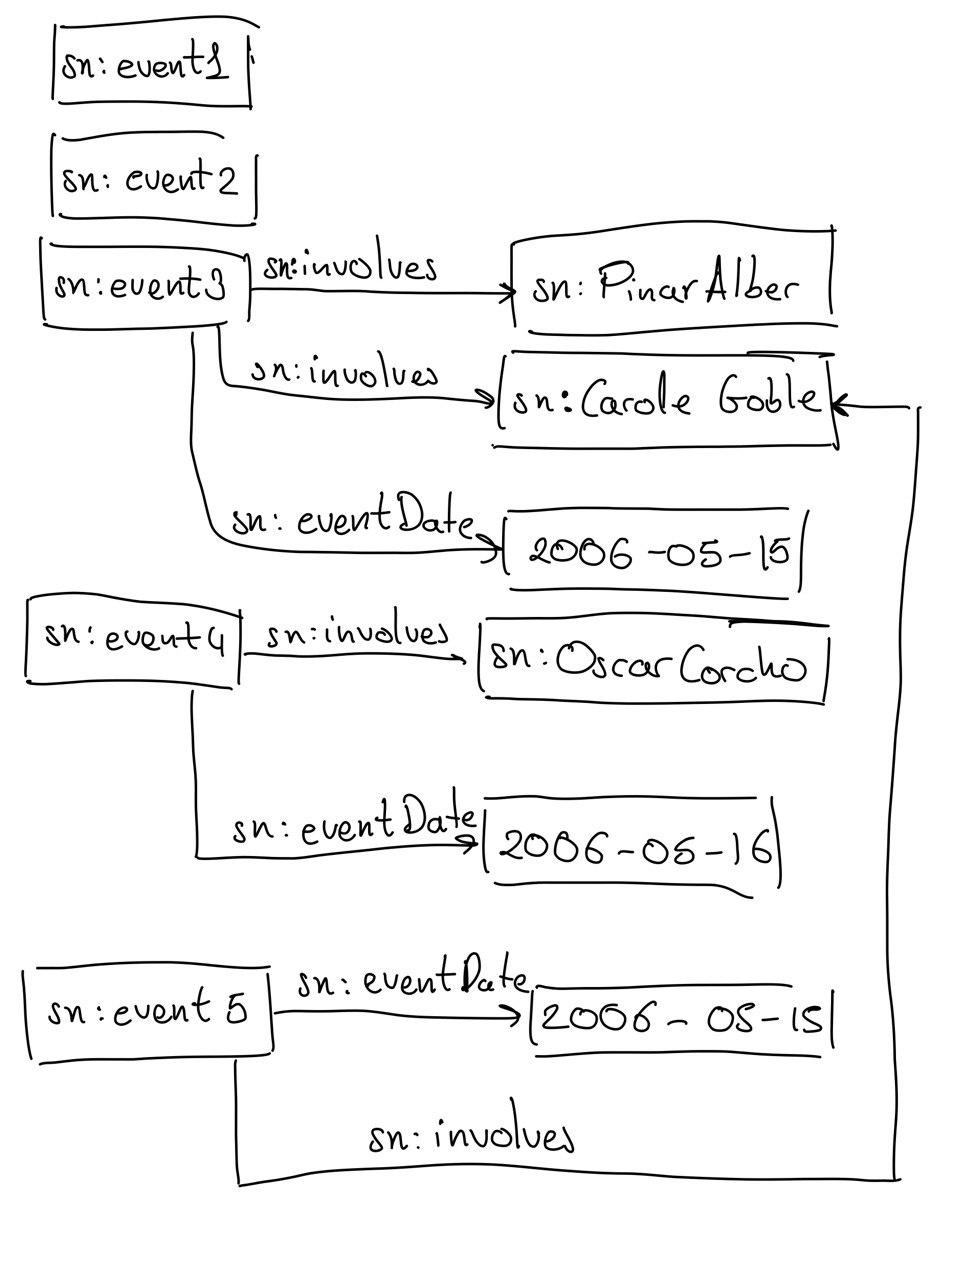 sn: event1
sn: event2
sn:event3
sn:involves
sn: Pinar Alber
sn:involves
sn:Carole Goble
sn: eventDate
2006-05-15
sn:event4
sn:involves
sn:Oscar Corcho
sn: eventDate
2006-05-16
sn:event 5
sn: eventDate
2006-05-15
sn: involves